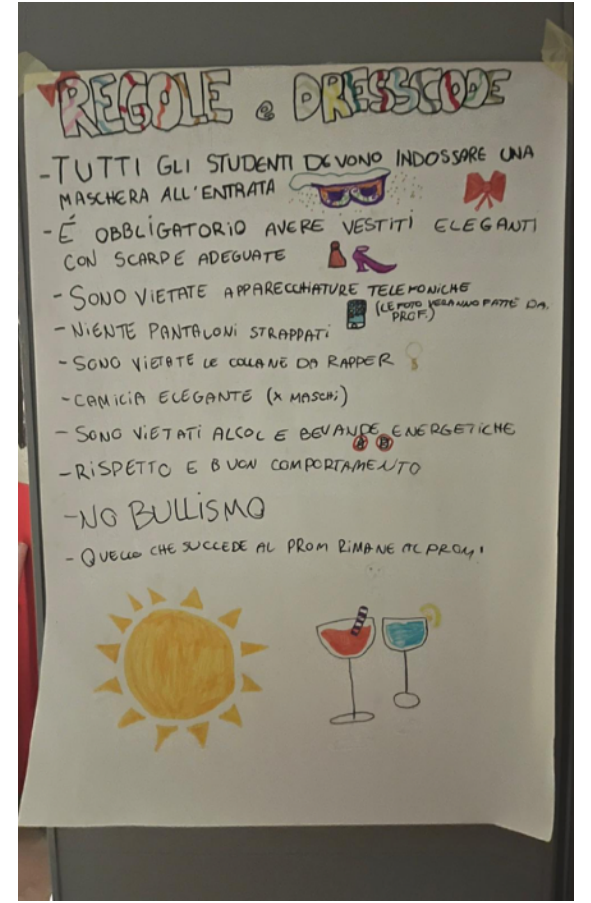 REGOLE e DRESSCODE
- TUTTI GLI STUDENTI DEVONO INDOSSARE UNA
MASCHERA ALL'ENTRATA
- É OBBLIGATORIO AVERE VESTITI ELEGANTI
CON SCARPE ADEGUATE
- SONO VIETATE APPARECCHIATURE TELEFONICHE
(LE FOTO VERANNO FATTE DA.
PROF.)
- NIENTE PANTALONI STRAPPATI
- SONO VIETATE LE COLLANE DA RAPPER
- CAMICIA ELEGANTE (X MASCHI)
- SONO VIETATI ALCOL E BEVANDE ENERGETICHE
- RISPETTO E BUON COMPORTAMENTO
- NO BULLISMO
- QUELLO CHE SUCCEDE AL PROM RIMANE AL PROM!